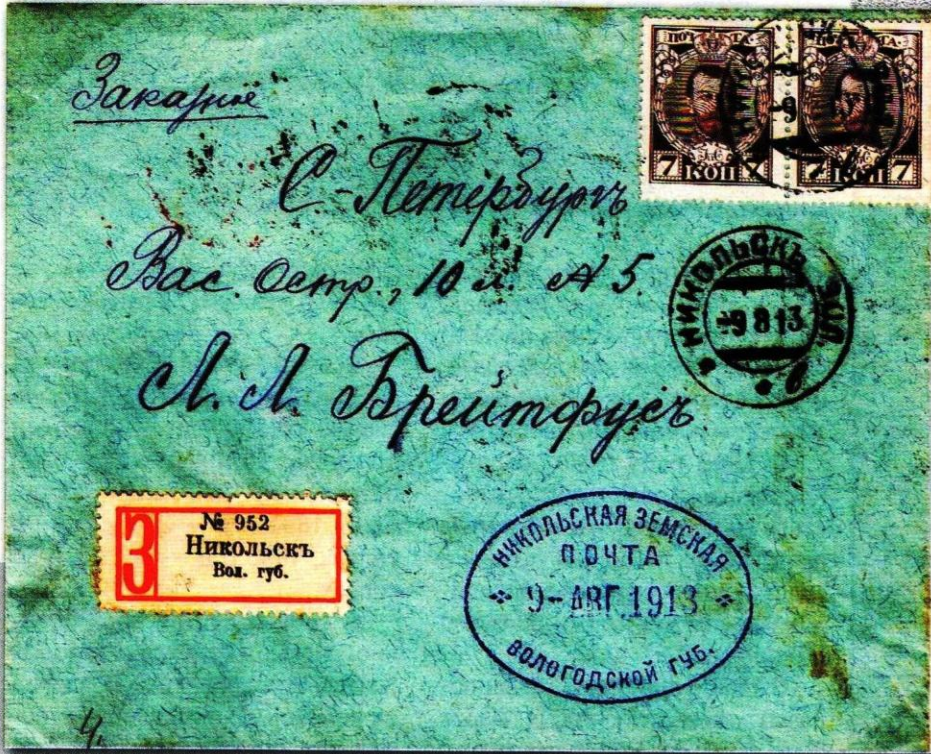 Заказное
ПОЧТА
ПОЧТА
7 КОП 7
7 КОП 7
С-Петербургъ
Вас. Остр., 10 л. № 5.
Л. Л. Брейтфусъ
НИКОЛЬСКЪ ВОЛ.
-9 8 13
в
З
№ 952
Никольскъ
Вол. губ.
НИКОЛЬСКАЯ ЗЕМСКАЯ
ПОЧТА
9-АВГ.1913
ВОЛОГОДСКОЙ ГУБ.